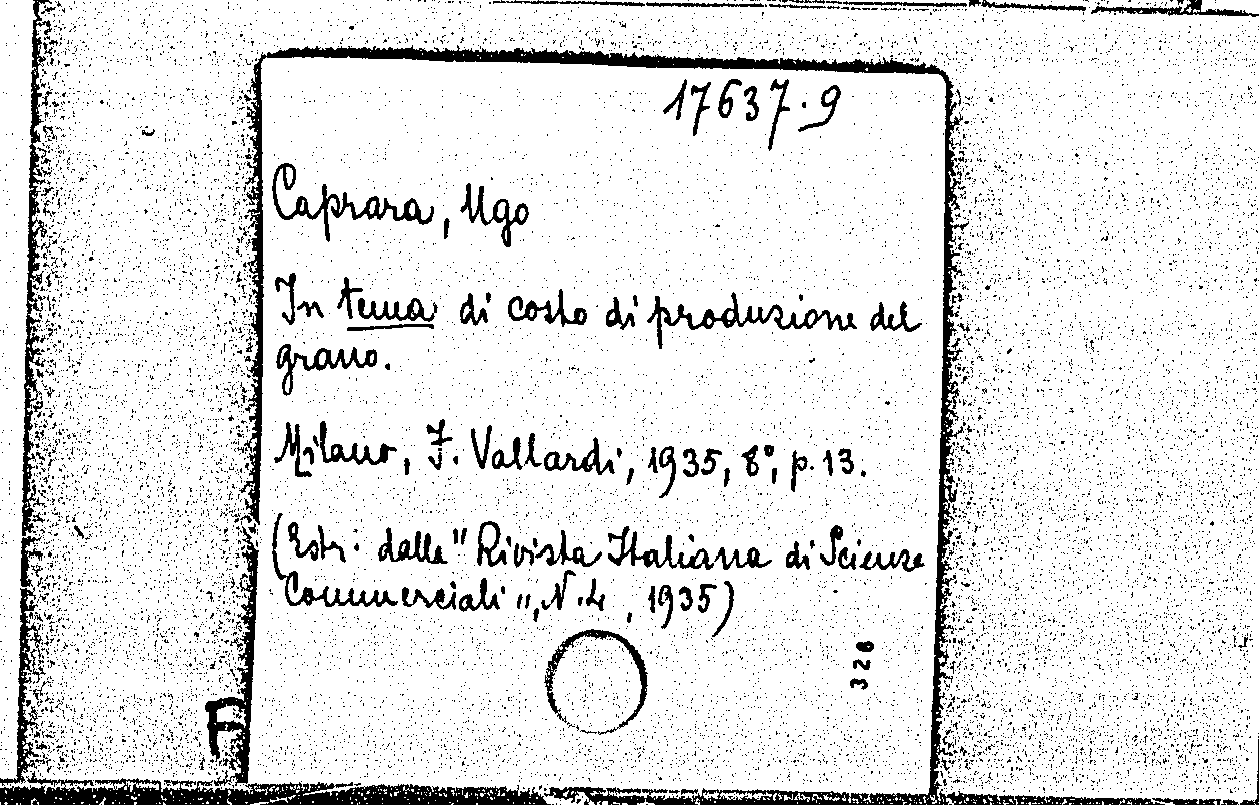 17637.9
Caprara, Ugo
In tema di costo di produzione del
grano.
Milano, F. Vallardi, 1935, 8°, p. 13.
(Estr. dalla "Rivista Italiana di Scienze
Commerciali", N. 4, 1935)
326
F